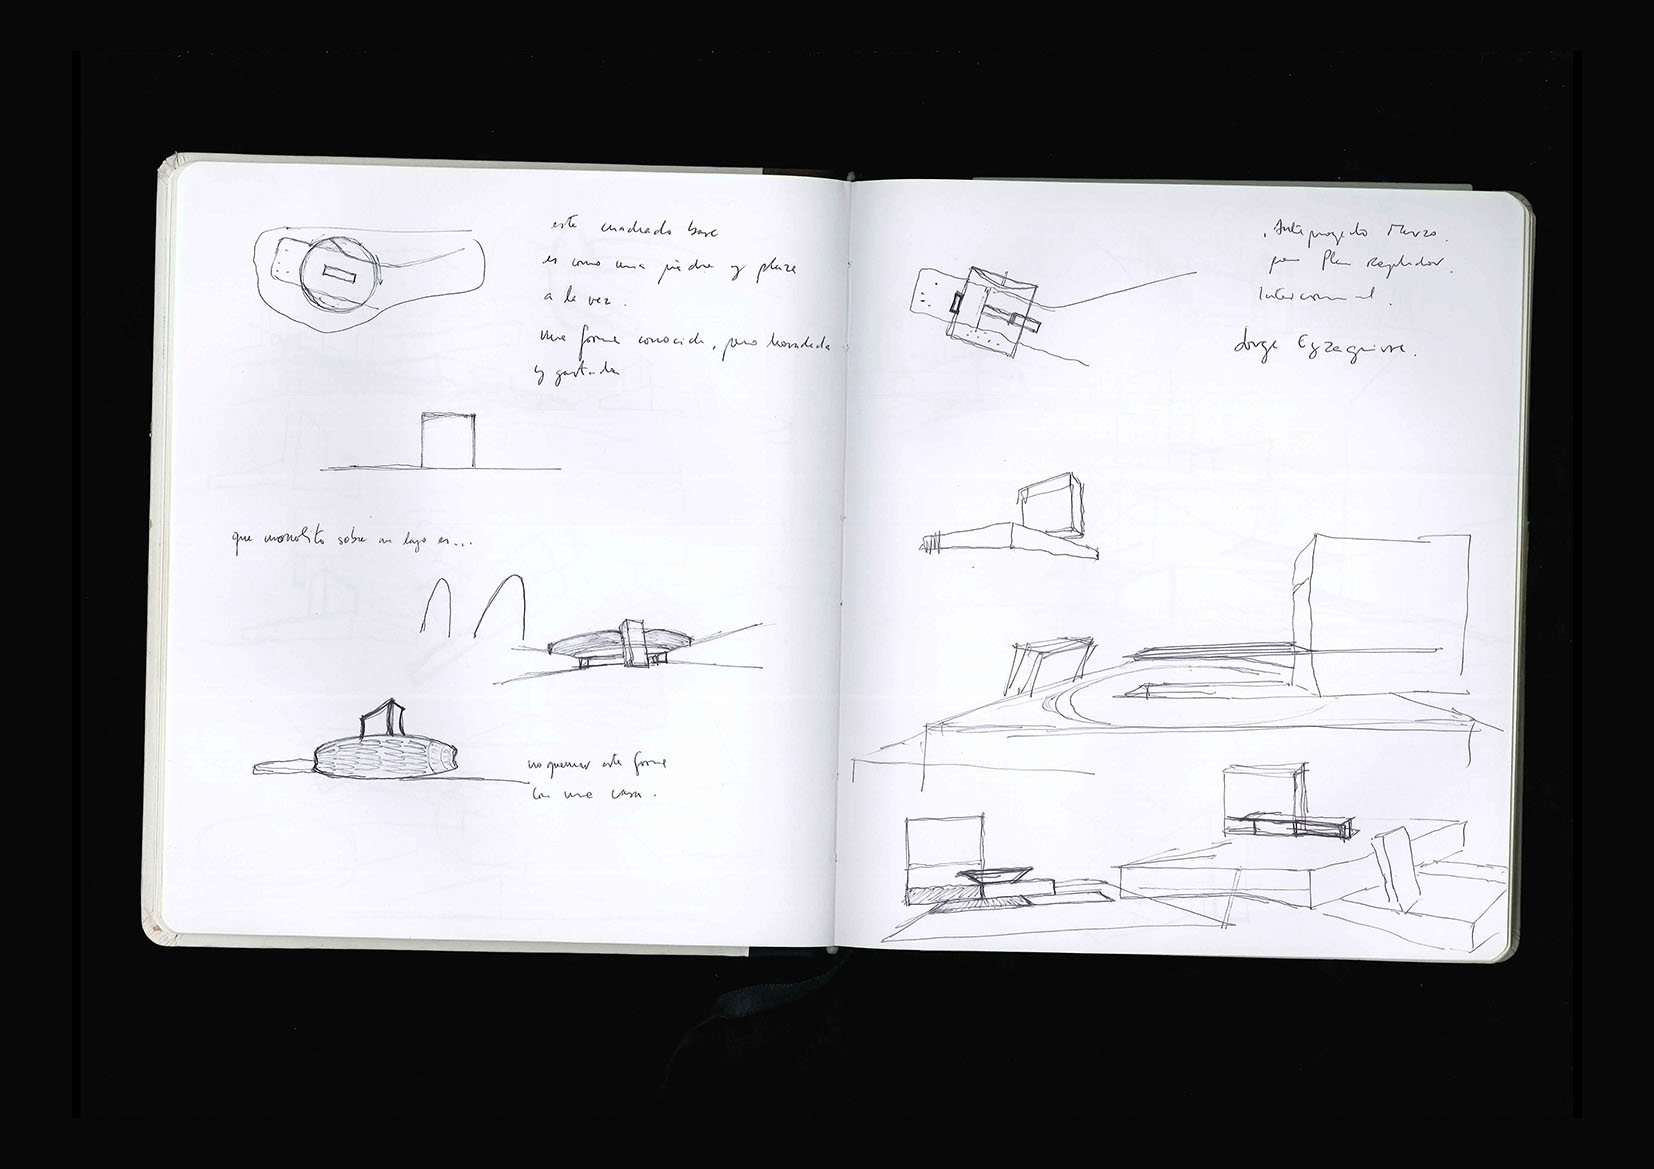 este cuadrado base
es como una piedra y plaza
a la vez.
una forma conocida, pero horadada
y gastada
que monolito sobre un lago es...
no quemar esta forma
con una casa.
. Anteproyecto Marzo.
para Plan Regulador.
Intercomunal.
Jorge Eyzaguirre.